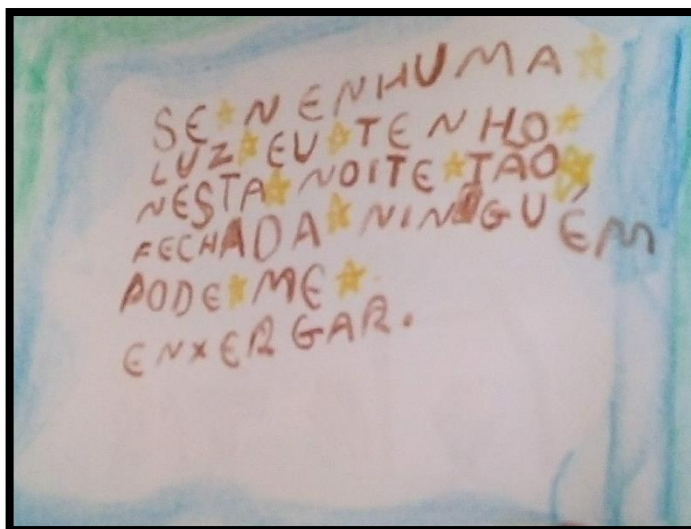 SE NENHUMA
LUZ EU TENHO
NESTA NOITE TÃO
FECHADA NINGUÉM
PODE ME
ENXERGAR.